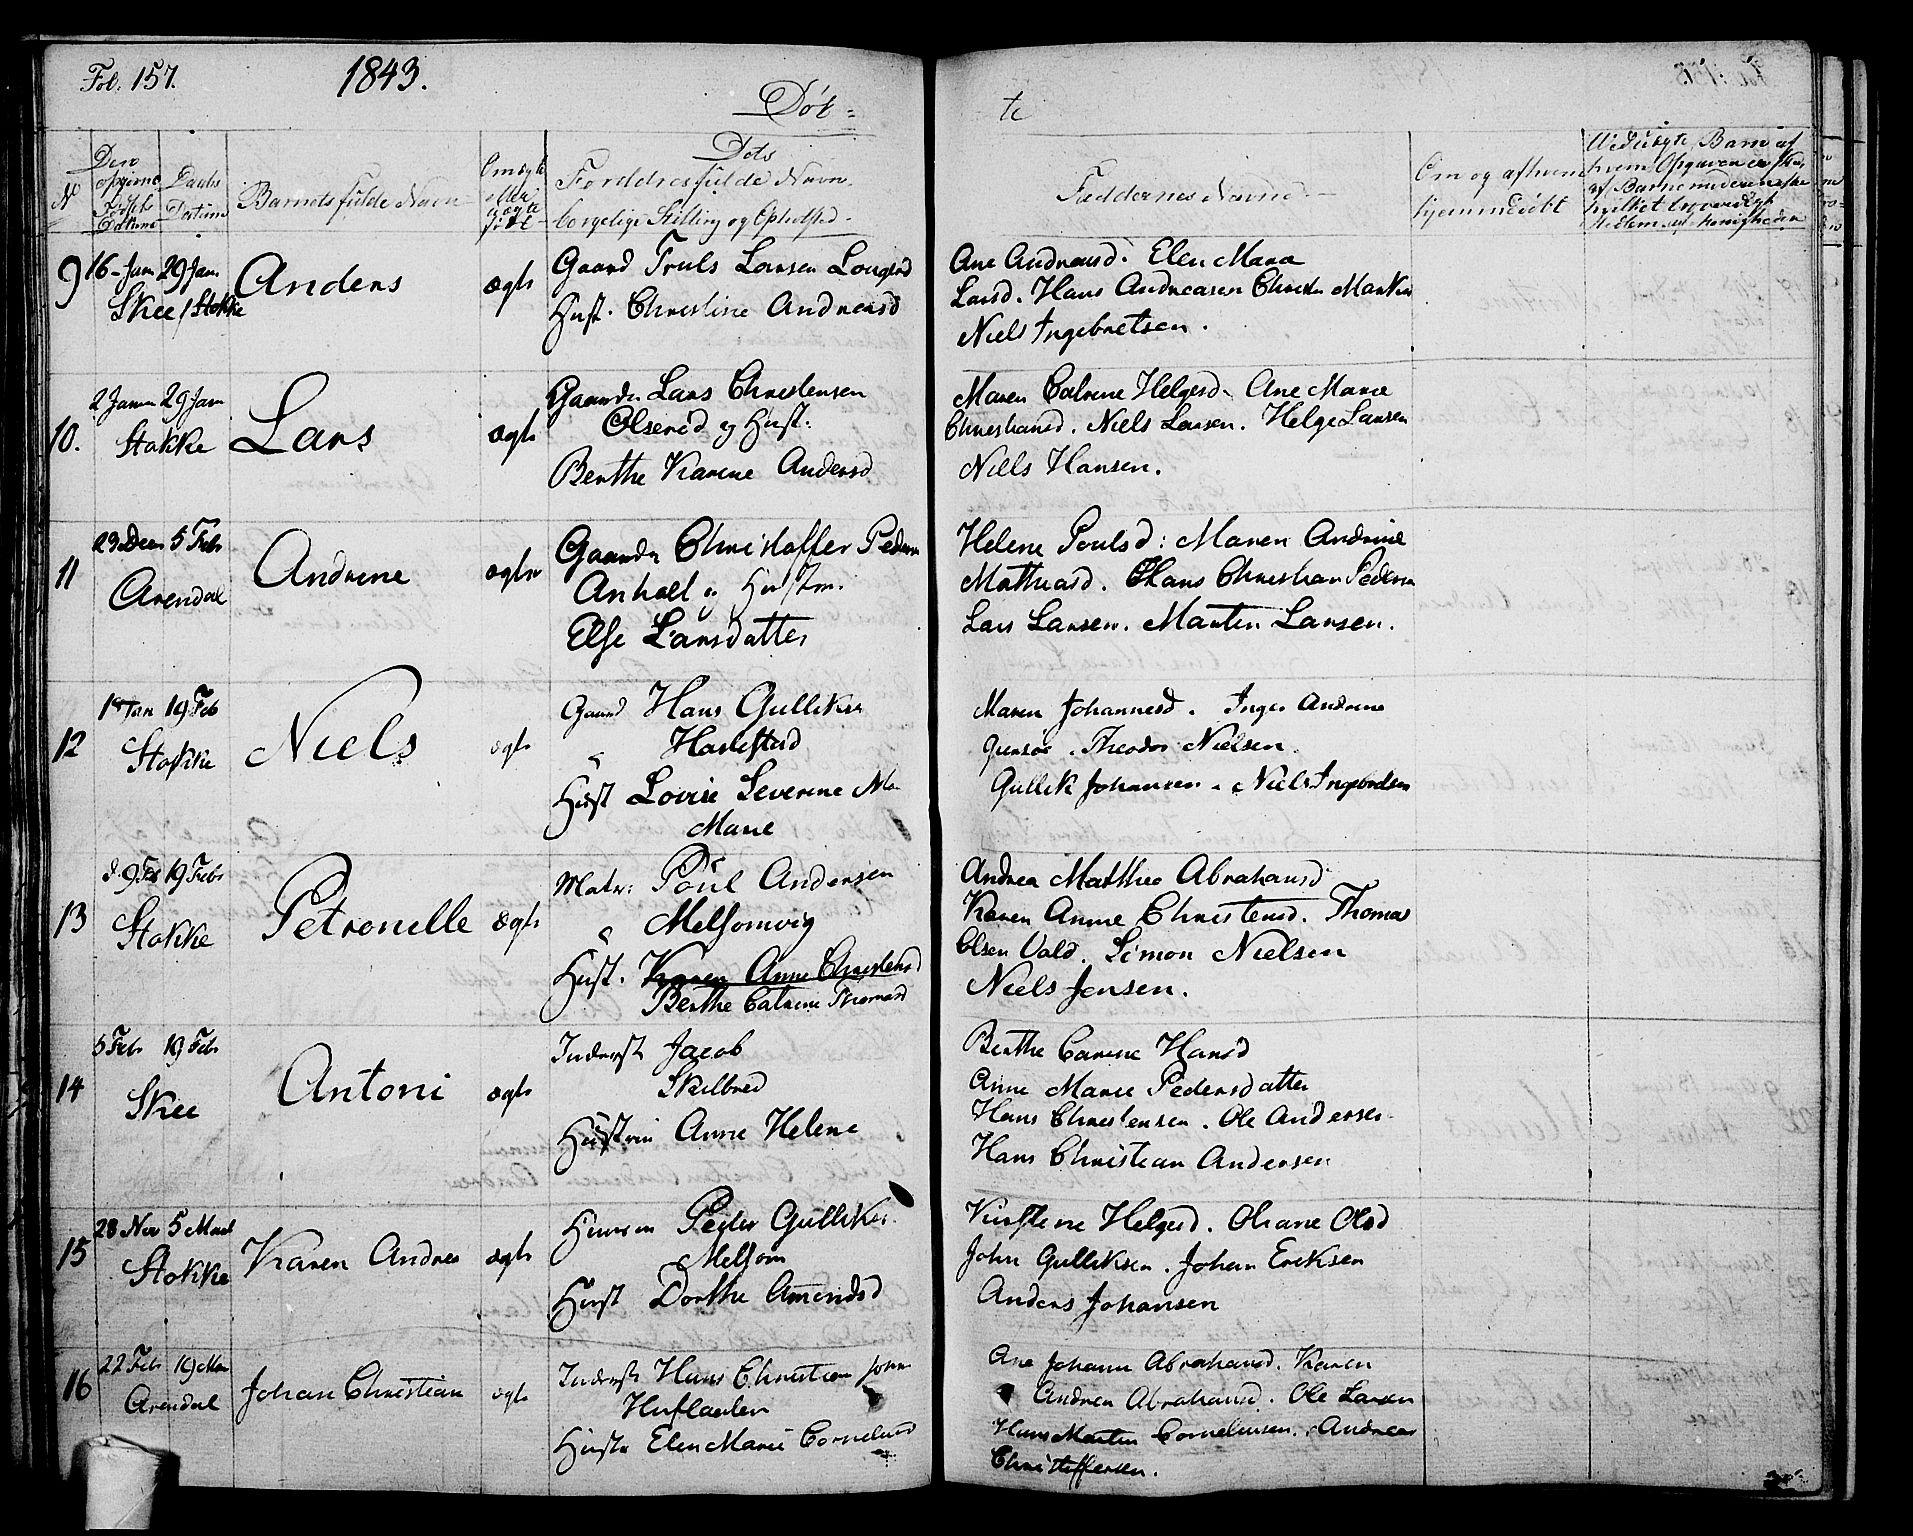 Fol. 157.
1843.
Døb-
te
N
Dets
Barnets fulde Navn
Forældres fulde Navn
borgelige Stilling og Ophold.
Faddernes Navne
Om og af hvem
hjemmedøbt
9
16 Jan 29 Jan
Skee / Stokke
Anders
ægte
Gaard Truls Larsen
Hust. Christine Andreasd
Ane Andreasd. Elen Maria
Larsd. Hans Andreasen
Niels Ingebretsen.
10.
2 Janu 29 Jan
Stokke
Lars
ægte
Gaardm Lars Christensen
Olserød og Hust:
Berthe Karine Andersd
Maren Catrine Helgesd. Ane Marie
Christiansd. Niels Larsen. Helge Larsen
Niels Hansen.
11
23 Dec 5 Feb
Arendal
Andrine
ægte
Gaardm Christoffer Peders
Anholt og Hustru
Else Larsdatter
Helene Poulsd: Maren Andrine
Mathiasd. Hans Christian Peders
Lars Larsen. Martin Larsen.
12
19 Feb
Stokke
Niels
ægte
Gaard Hans Gulliks
Hust Lovise Severine
Marie
Maren Johannesd. Inger Andrine
Theodor Nielsen.
Gullik Johansen. Niels Ingebretsen
13
9 Feb 19 Feb
Stokke
Petronelle
ægte
Matr: Poul Andersen
Melsomvig
Hust. Karen Anne Christensd
Berthe Catrine Thomasd
Andrea Mathea Abrahamsd
Karen Anne Christensd. Thomas
Olsen Vald. Simon Nielsen
Niels Jensen.
14
5 Feb 19 Feb
Skee
Antoni
ægte
Inderst Jacob
Skilbred
Hustru Anne Helene
Berthe Carine Hansd
Anne Marie Pedersdatter
Hans Christensen. Ole Andersen
Hans Christian Andersen
15
28 Nov 5 Mart
Stokke
Karen Andrea
ægte
Huusm Peder Gulliks.
Melsom
Hust Dorthe Amundsd
Kirstene Helgesd. Oliane Olsd
John Gulliksen. Johan Eriksen
Anders Johansen
16
22 Feb 19 Mar
Arendal
Johan Christian
ægte
Inderst Hans Christian John
Hustr Elen Marie Cornelius
Ane Johanne Abrahamsd. Karen
Andrea Abrahamsd. Ole Larsen
Hans Martin Corneliussen. Andreas
Christoffersen.